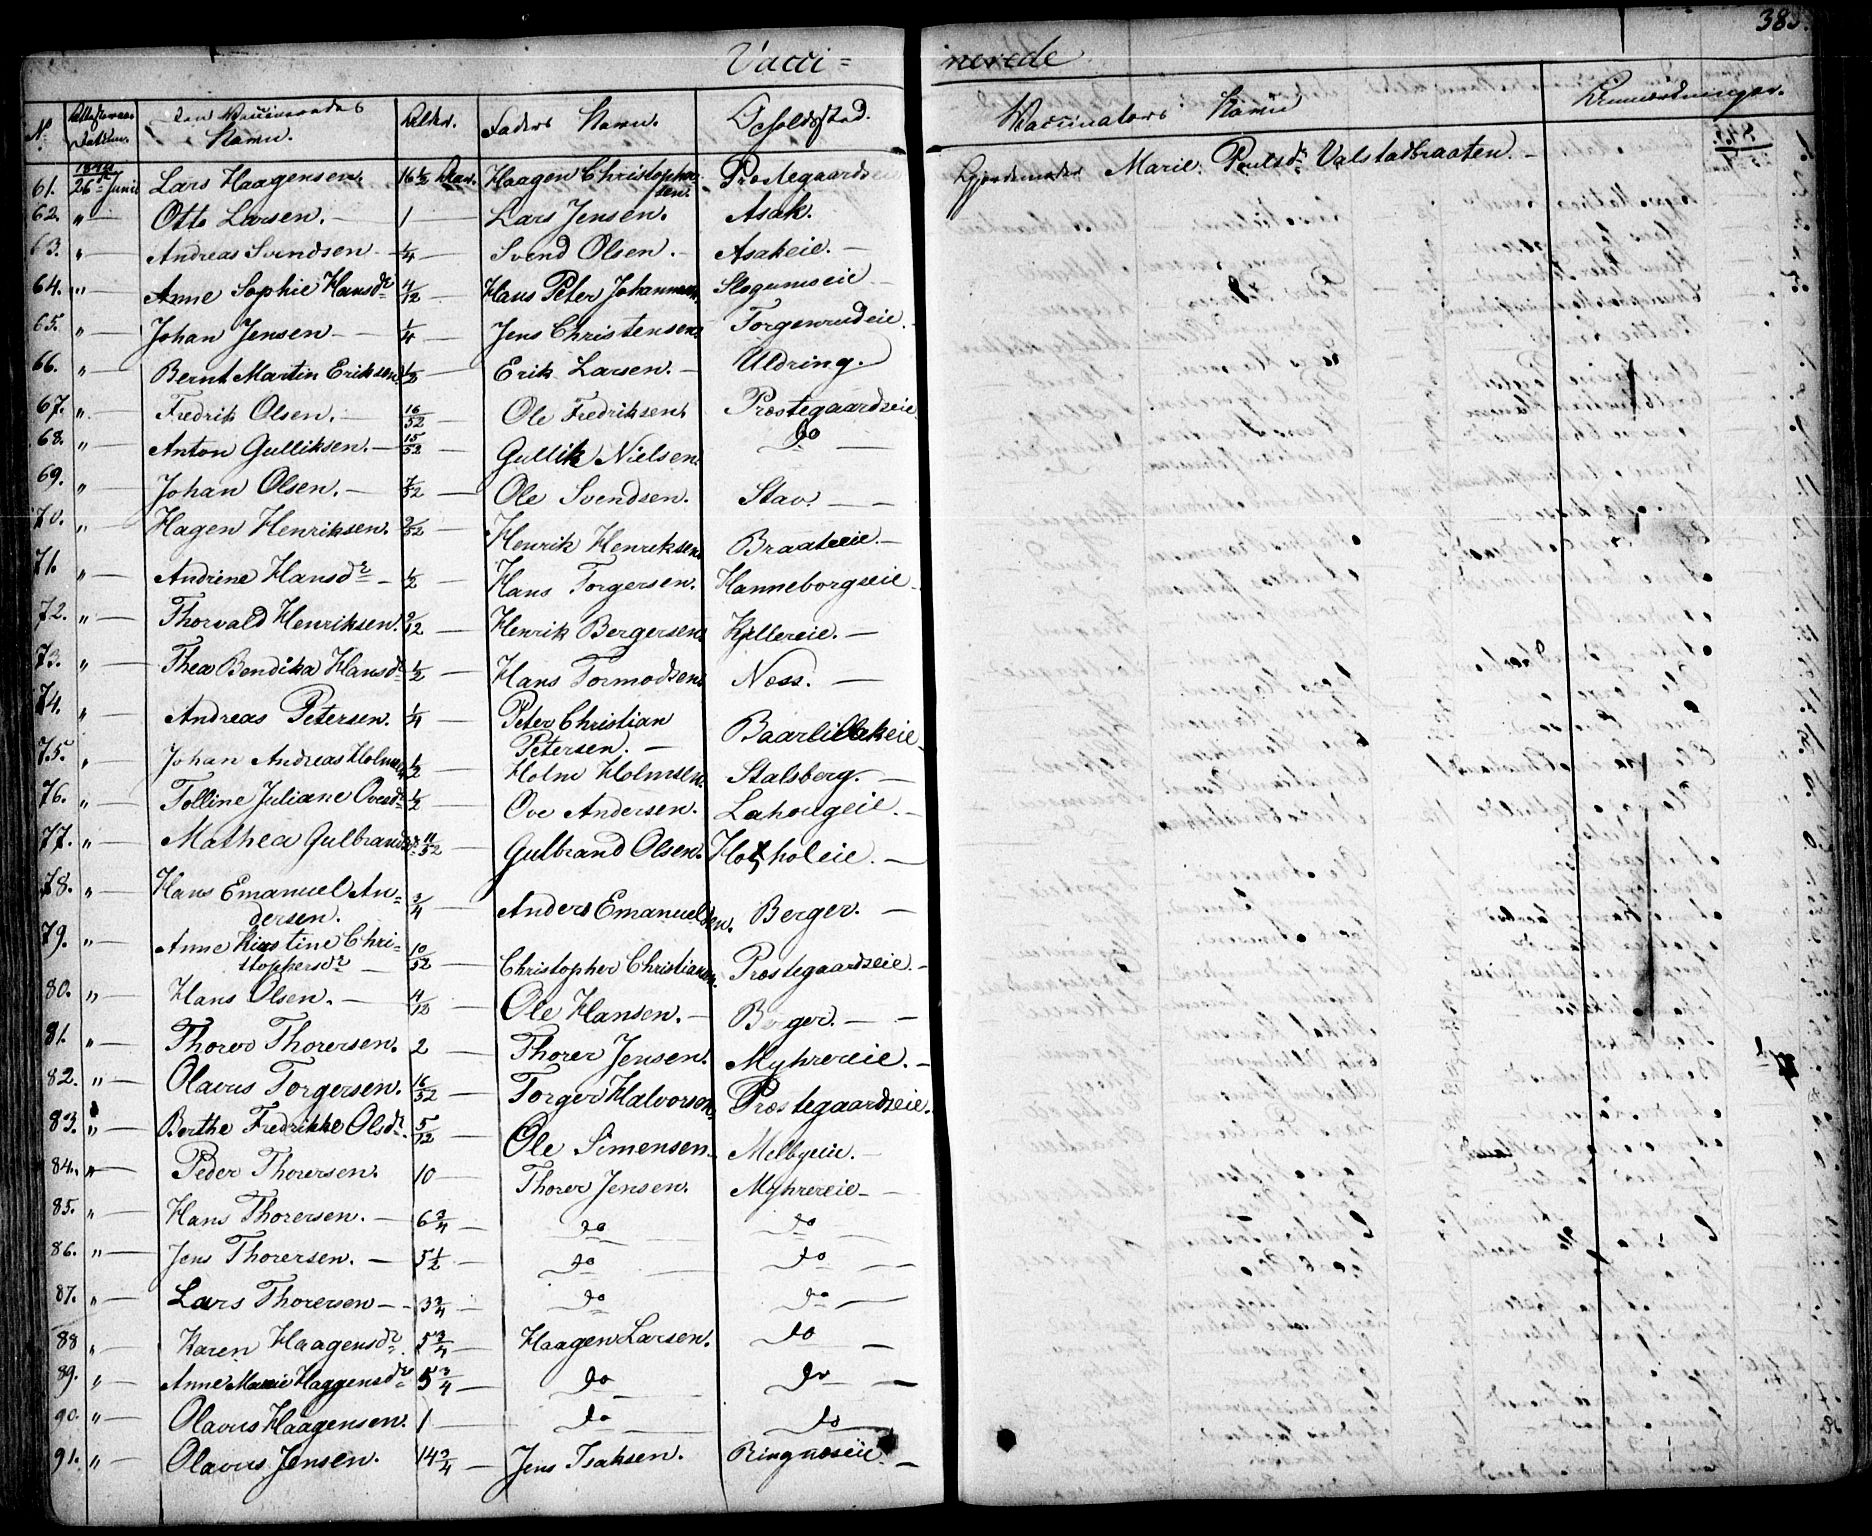 385.
Vacci= nerede
No. Attesternes Datum. den Vaccineredes Navn. Alder. Faders Navn. Opholdssted. Vaccinators Navn Anmærkninger.
61. 26de Junii Lars Haagensen. 16 1/2 Aar. Haagen Christopher= Præstegaardseie Gjordemoder Marie Poulsdr Valstadbraaten. –
sen.
62. " — Otto Larsen. — 1 — Lars Jensen. Asak.
63. " — Andreas Svendsen — 1/4 — Svend Olsen. — Asakeie. —
64. " — Anne Sophie Hansdr 4/12 — Hans Peter Johannesen. Slogumseie —
65. " — Johan Jensen — 1/4 — Jens Christensen. Torgenrudeie.
66. " — Bernt Martin Eriksen. 1/2 — Erik Larsen. — Uldring.
67. " — Fredrik Olsen. — 16/52 — Ole Fredriksen. Præstegaardseie
68. " — Anton Gulliksen. — 15/52 — Gullik Nielsen. do —
69. " — Johan Olsen. — 7/52 — Ole Svendsen. Stav. — —
70. " — Hagen Henriksen. 9/52 — Henrik Henriksen. Braateeie. —
71. " — Andrine Hansdr — 1/2 — Hans Torgersen. Hanneborgseie —
72. " — Thorvald Henriksen. 9/12 — Henrik Bergersen. Kjellereie. —
73. " — Thea Bendika Hansdr 1/2 — Hans Tormodsen. Næss. —
74. " — Andreas Petersen. 1/4 — Peter Christian Baarlilleieie —
Petersen. —
75. " — Johan Andreas Holmsen 1/2 — Holm Holmsen. Stalsberg. —
76. " — Tolline Juliane Ovesdr 1/2 — Ove Andersen. Lahougeie. —
77. " — Mathea Gulbrandsdr 11/52 — Gulbrand Olsen. Holtholeie. —
78. " — Hans Emanuel An=
dersen. 3/4 — Anders Emanuelsen. Berger. —
79. " — Anne Kirstine Chri=
stophersdr — 10/52 — Christopher Christiansen. Præstegaardseie. —
80. " — Hans Olsen. — 11/12 — Ole Hansen. — Berger. — —
81. " — Thorer Thorersen. 2 — Thorer Jensen. Myhrereie. —
82. " — Olavus Torgersen. 16/52 — Torger Halvorsen. Præstegaardseie.
83. " — Berthe Fredrikke Olsdr. 5/12 — Ole Simensen. Melbyeie. —
84. " — Peder Thorersen. 10 — Thorer Jensen. Myhrereie — —
85. " — Hans Thorersen. — 6 3/4 — do do —
86. " — Jens Thorersen. — 5 1/2 — do — do —
87. " — Lars Thorersen — 3 3/4 — do do —
88 " Karen Haagensdr. 5 3/4 — Haagen Larsen. do —
89. " — Anne Marie Haggensdr 5 3/4 — do — do —
90. " — Olavus Haagensen. 1 — do — do
91. " — Olavus Jensen. 14 3/4 — Jens Isaksen. Ringnæseie. —